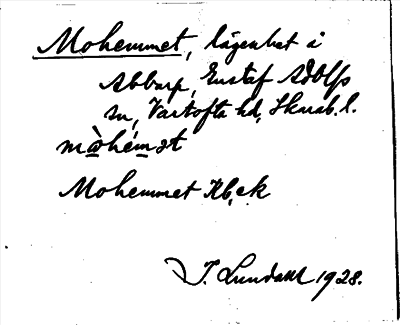 Mohemmet, lägenhet i
Abbarp, Gustaf Adolfs
sn, Vartofta hd, Skarab. l.
mòhémət
Mohemmet Kb, ek
J. Lundahl 1928.